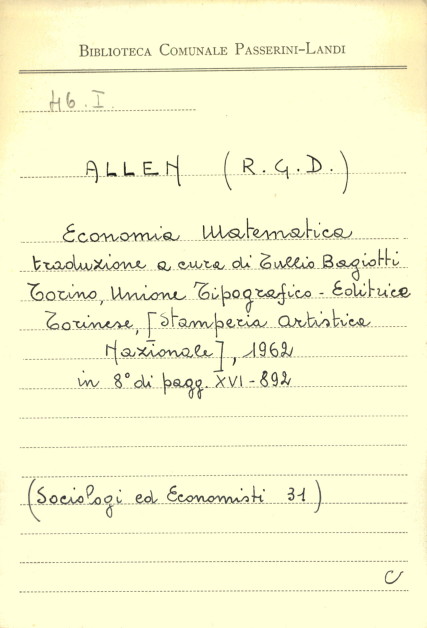 BIBLIOTECA COMUNALE PASSERINI-LANDI
46. I.
ALLEN (R.G.D.)
Economia Matematica
traduzione a cura di Tullio Bagiotti
Torino, Unione Tipografico - Editrice
Torinese, [Stamperia Artistica
Nazionale], 1962
in 8° di pagg. XVI-892
(Sociologi ed Economisti 31)
C